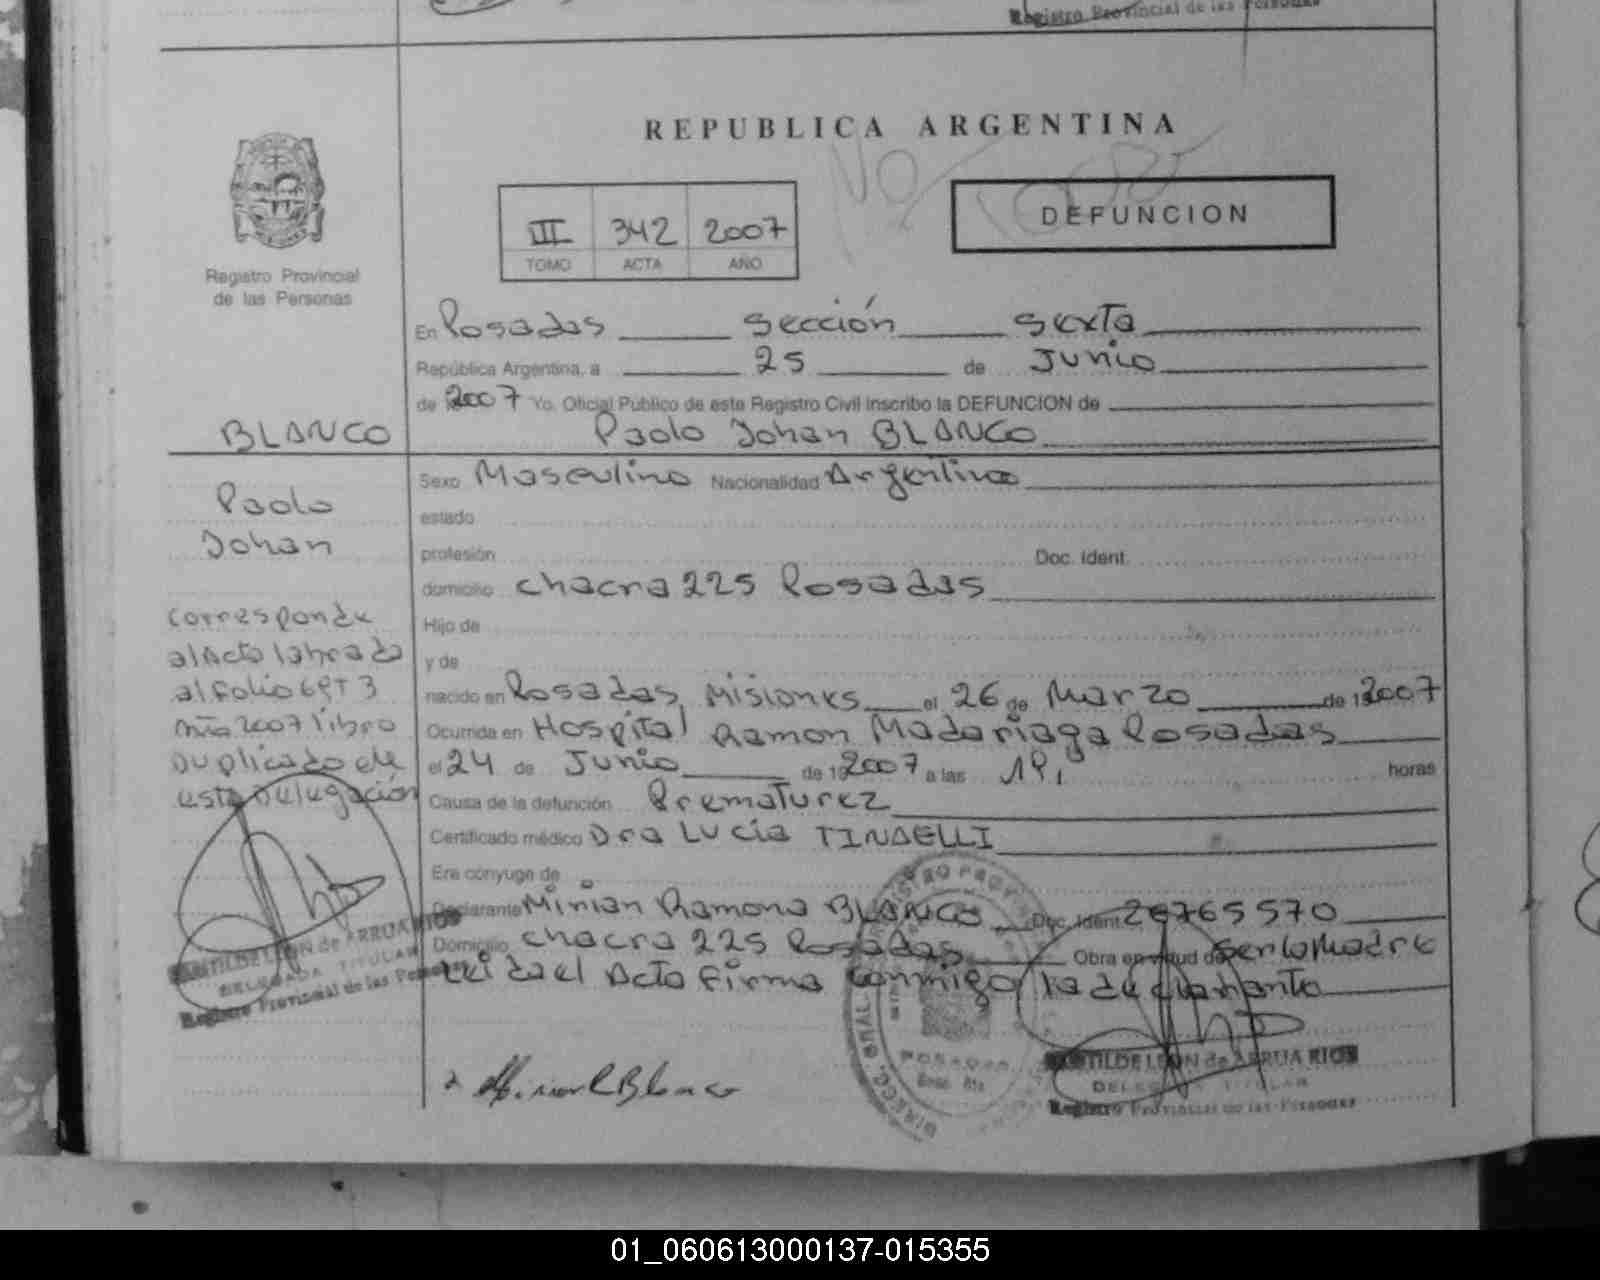 Registro Provincial de las Personas
REPUBLICA ARGENTINA
No
III 342 2007
TOMO ACTA AÑO
DEFUNCION
Registro Provincial
de las Personas
En Posadas sección sexta
República Argentina, a 25 de Junio
de 2007 Yo, Oficial Público de este Registro Civil inscribo la DEFUNCION de
BLANCO
Paolo Johan BLANCO
Paolo
Johan
corresponde
al Acta labrada
al folio 69 T 3
Año 2007 libro
Duplicado de
esta Delegación
Sexo Masculino Nacionalidad Argentino
estado
profesión Doc. Ident.
domicilio chacra 225 Posadas
Hijo de
y de
nacido en Posadas, Misiones el 26 de Marzo de 2007
Ocurrida en Hospital Ramon Madariaga Posadas
el 24 de Junio de 2007 a las 19, horas
Causa de la defunción Prematurez
Certificado médico Dra Lucia TINDELLI
Era cónyuge de
Declarante Mirian Ramona BLANCO Doc. Ident 26765570
Domicilio chacra 225 Posadas Obra en virtud de ser la Madre
Leida el Acta firma conmigo la declarante
MATILDE LEON de ARRUA RIOS
DELEGADA TITULAR
Registro Provincial de las Personas
POSADAS
MATILDE LEON de ARRUA RIOS
DELEGADA TITULAR
Registro Provincial de las Personas
01_060613000137-015355